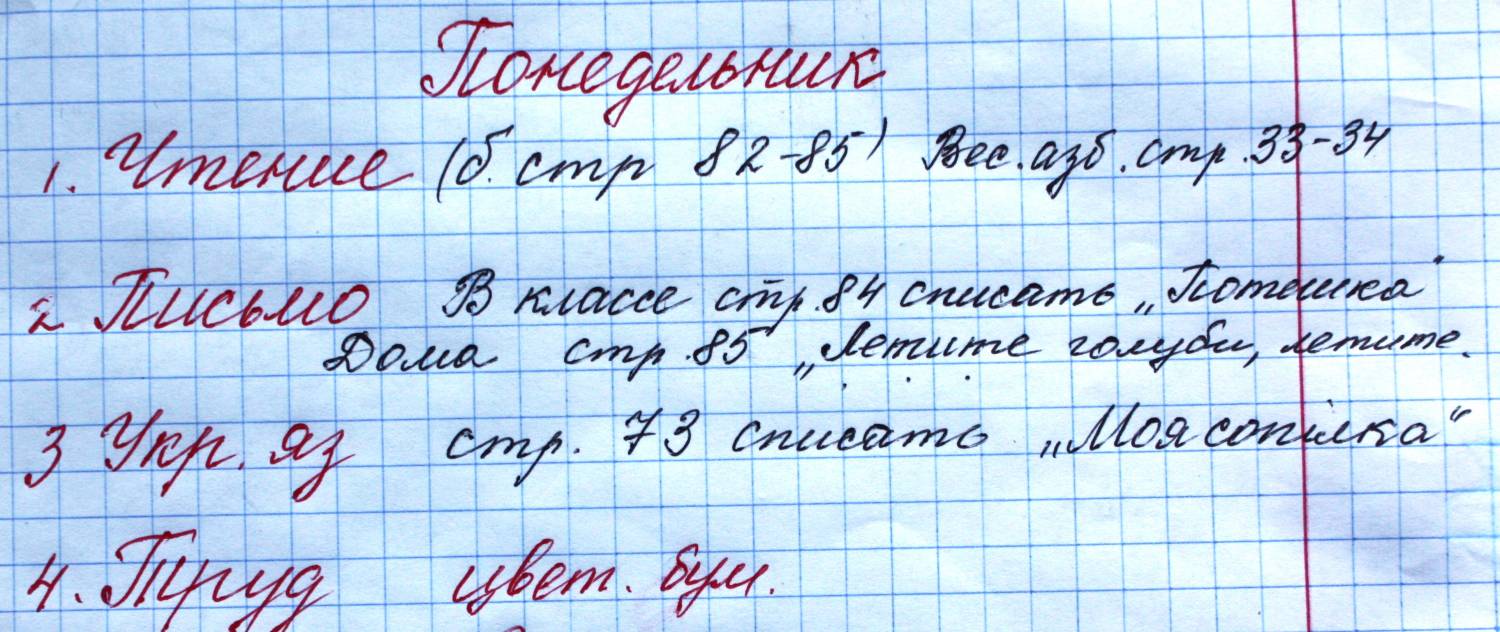 Понедельник
1. Чтение (б. стр 82-85) Вес. азб. стр. 33-34
2 Письмо В классе стр. 84 списать „Потешка"
Дома стр. 85 „Летите голуби, летите.
3 Укр. яз стр. 73 списать „Моя сопілка"
4. Труд цвет. бум.